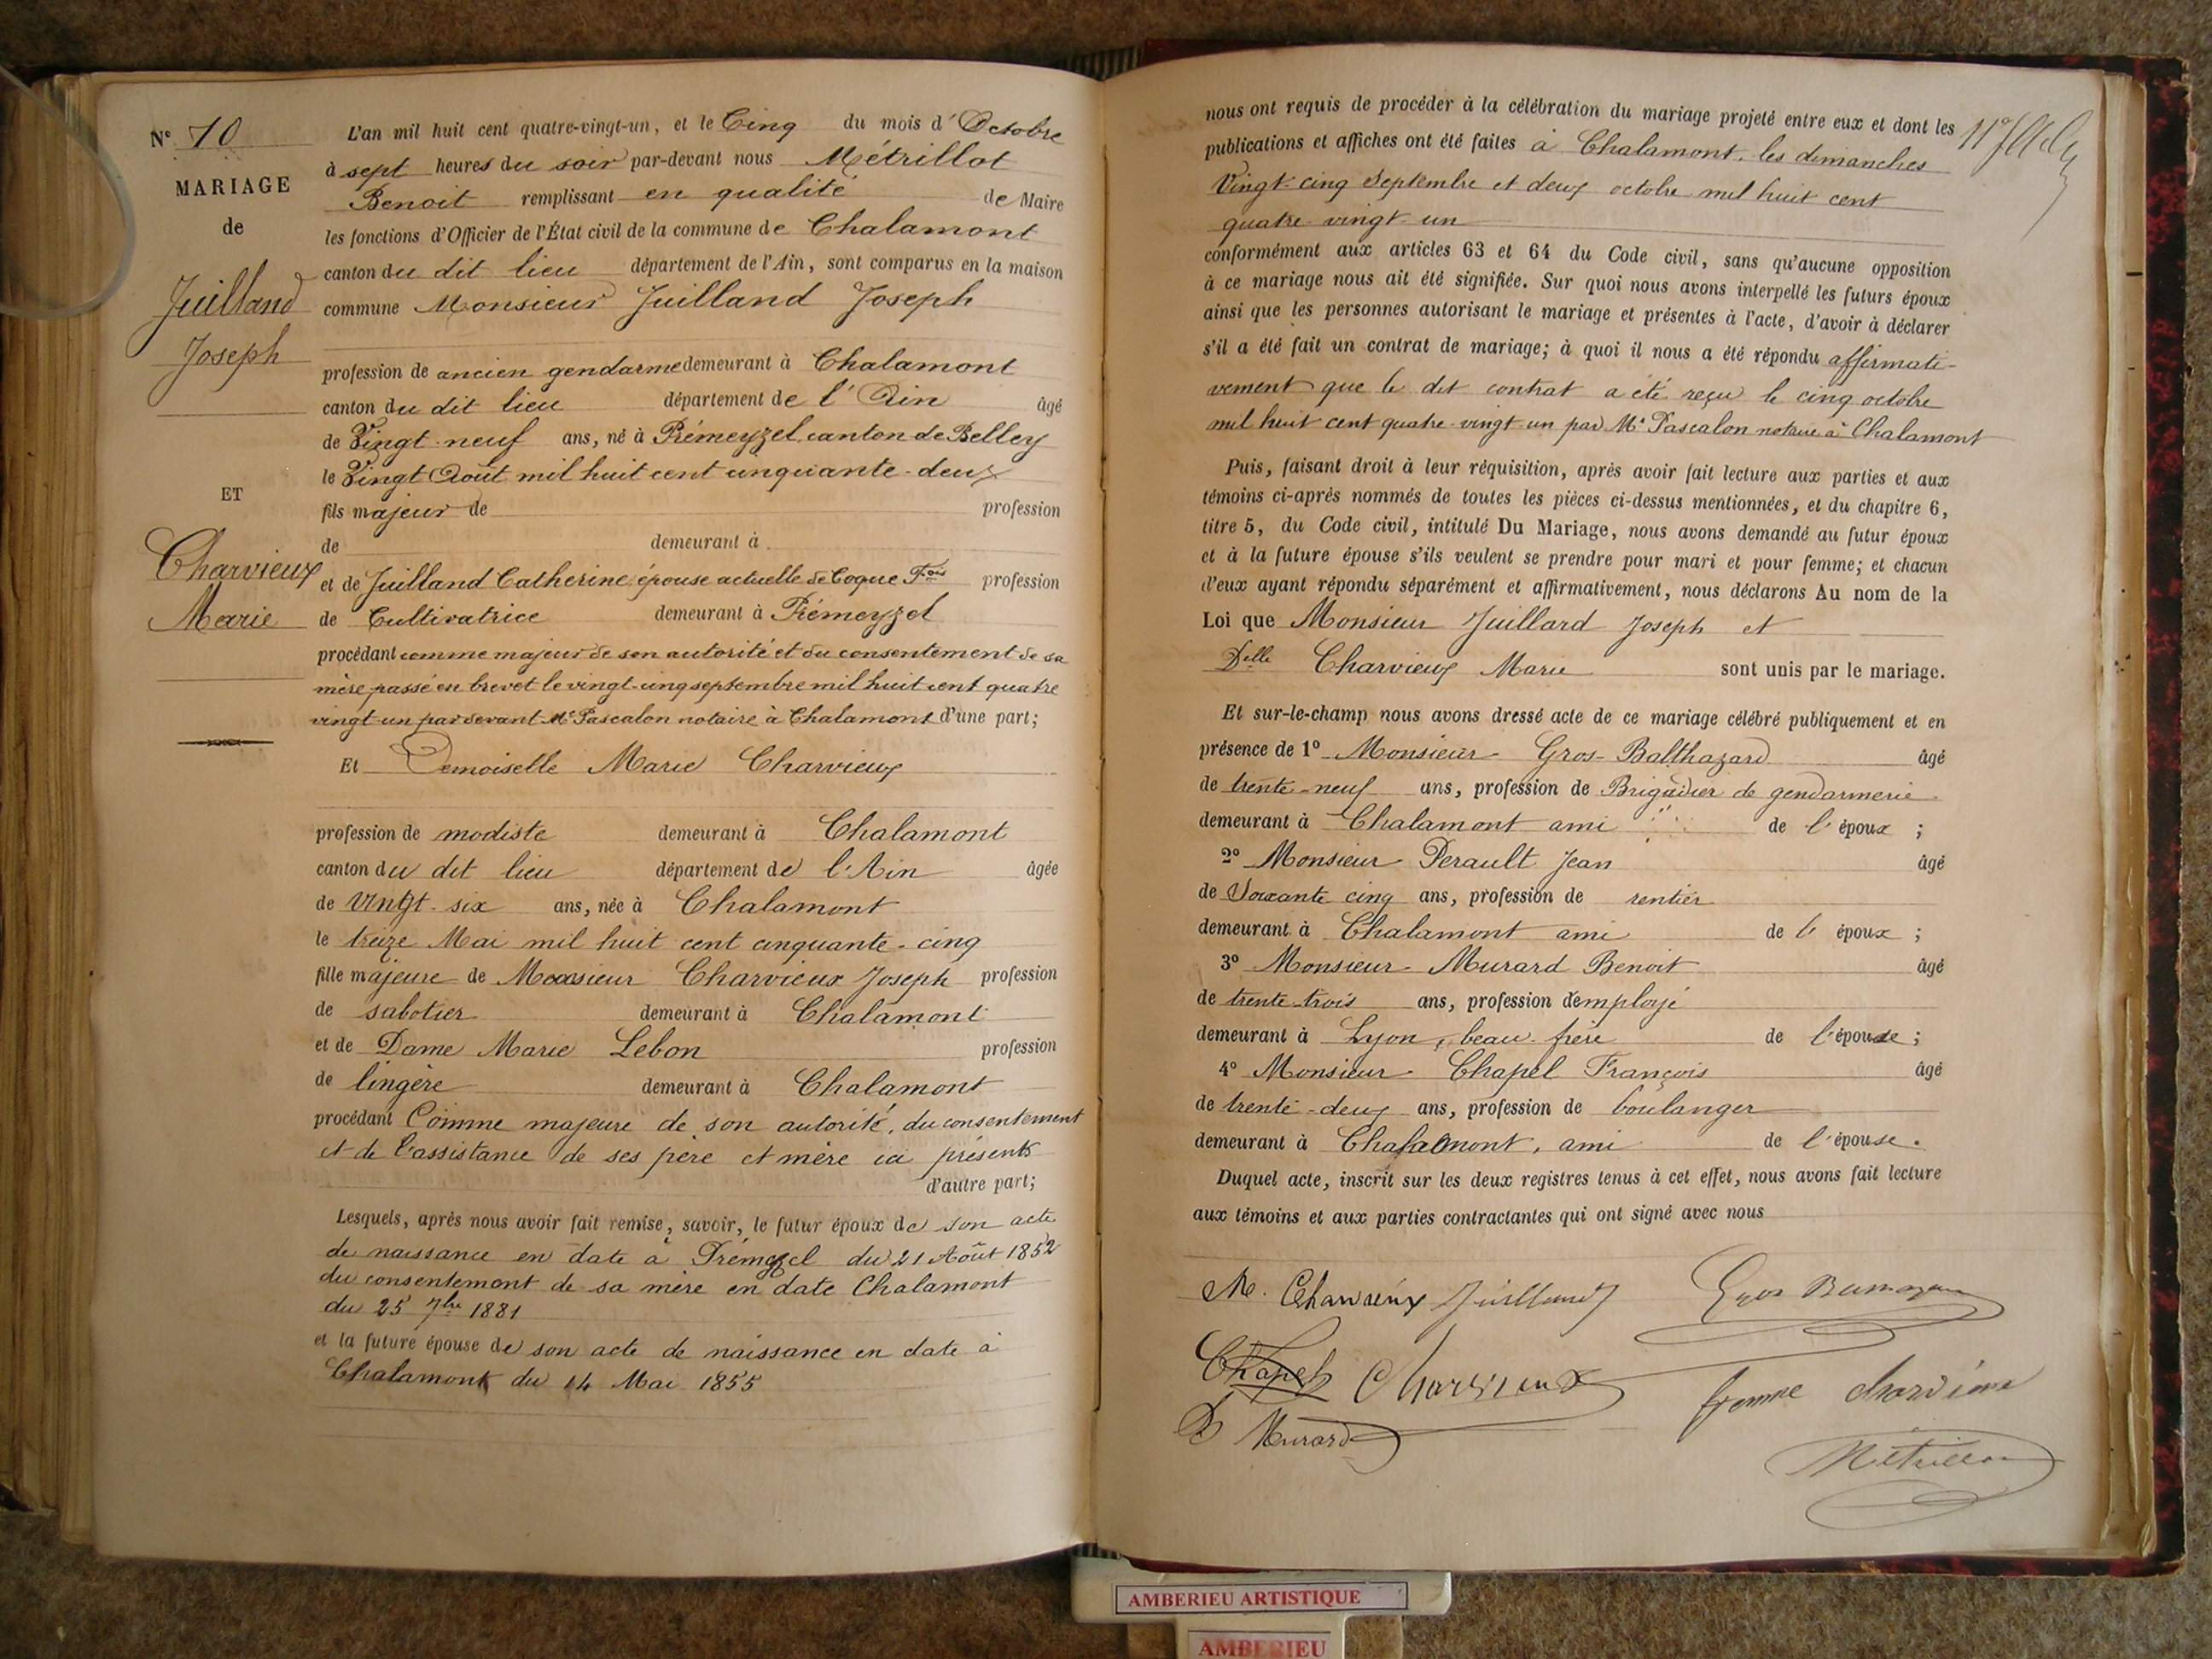 N° 10
MARIAGE
de
Juilland
Joseph
ET
Charvieux
Marie
L'an mil huit cent quatre-vingt-un, et le Cinq du mois d'Octobre
à sept heures du soir par-devant nous Métrillot
Benoit remplissant en qualité de Maire
les fonctions d'Officier de l'État civil de la commune de Chalamont
canton du dit lieu département de l'Ain, sont comparus en la maison
commune Monsieur Juilland Joseph
profession de ancien gendarme demeurant à Chalamont
canton du dit lieu département de l'Ain âgé
de Vingt-neuf ans, né à Prémeyzel canton de Belley
le Vingt Août mil huit cent cinquante-deux
fils majeur de profession
de demeurant à
et de Juilland Catherine, épouse actuelle de Coque Fois profession
de Cultivatrice demeurant à Prémeyzel
procédant comme majeur de son autorité et du consentement de sa
mère passé en brevet le vingt-cinq septembre mil huit cent quatre
vingt-un par devant Me Pascalon notaire à Chalamont d'une part;
Et Demoiselle Marie Charvieux
profession de modiste demeurant à Chalamont
canton du dit lieu département de l'Ain âgée
de vingt-six ans, née à Chalamont
le treize Mai mil huit cent cinquante-cinq
fille majeure de Monsieur Charvieux Joseph profession
de sabotier demeurant à Chalamont
et de Dame Marie Lebon profession
de lingère demeurant à Chalamont
procédant Comme majeure de son autorité, du consentement
et de l'assistance de ses père et mère ici présents
d'autre part;
Lesquels, après nous avoir fait remise, savoir, le futur époux de son acte
de naissance en date à Prémeyzel du 21 Août 1852
du consentement de sa mère en date Chalamont
du 25 7bre 1881
et la future épouse de son acte de naissance en date à
Chalamont du 14 Mai 1855
nous ont requis de procéder à la célébration du mariage projeté entre eux et dont les
publications et affiches ont été faites à Chalamont, les dimanches
Vingt-cinq Septembre et deux octobre mil huit cent
quatre-vingt-un
conformément aux articles 63 et 64 du Code civil, sans qu'aucune opposition
à ce mariage nous ait été signifiée. Sur quoi nous avons interpellé les futurs époux
ainsi que les personnes autorisant le mariage et présentes à l'acte, d'avoir à déclarer
s'il a été fait un contrat de mariage; à quoi il nous a été répondu affirmati-
vement que le dit contrat a été reçu le cinq octobre
mil huit cent quatre-vingt un par Me Pascalon notaire à Chalamont
Puis, faisant droit à leur réquisition, après avoir fait lecture aux parties et aux
témoins ci-après nommés de toutes les pièces ci-dessus mentionnées, et du chapitre 6,
titre 5, du Code civil, intitulé Du Mariage, nous avons demandé au futur époux
et à la future épouse s'ils veulent se prendre pour mari et pour femme; et chacun
d'eux ayant répondu séparément et affirmativement, nous déclarons Au nom de la
Loi que Monsieur Juillard Joseph et
Delle Charvieux Marie sont unis par le mariage.
Et sur-le-champ nous avons dressé acte de ce mariage célébré publiquement et en
présence de 1° Monsieur Gros-Balthazard âgé
de trente-neuf ans, profession de Brigadier de gendarmerie
demeurant à Chalamont ami de l'époux ;
2° Monsieur Perault Jean âgé
de Soixante cinq ans, profession de rentier
demeurant à Chalamont ami de l'époux ;
3° Monsieur Murard Benoit âgé
de trente-trois ans, profession d'employé
demeurant à Lyon, beau-frère de l'épouse ;
4° Monsieur Chapel François âgé
de trente-deux ans, profession de boulanger
demeurant à Chalamont, ami de l'épouse.
Duquel acte, inscrit sur les deux registres tenus à cet effet, nous avons fait lecture
aux témoins et aux parties contractantes qui ont signé avec nous
M. Charvieux Juilland Gros
Chapel Charvieux femme charvieux
B Murard
Métrillot
AMBERIEU ARTISTIQUE
AMBERIEU